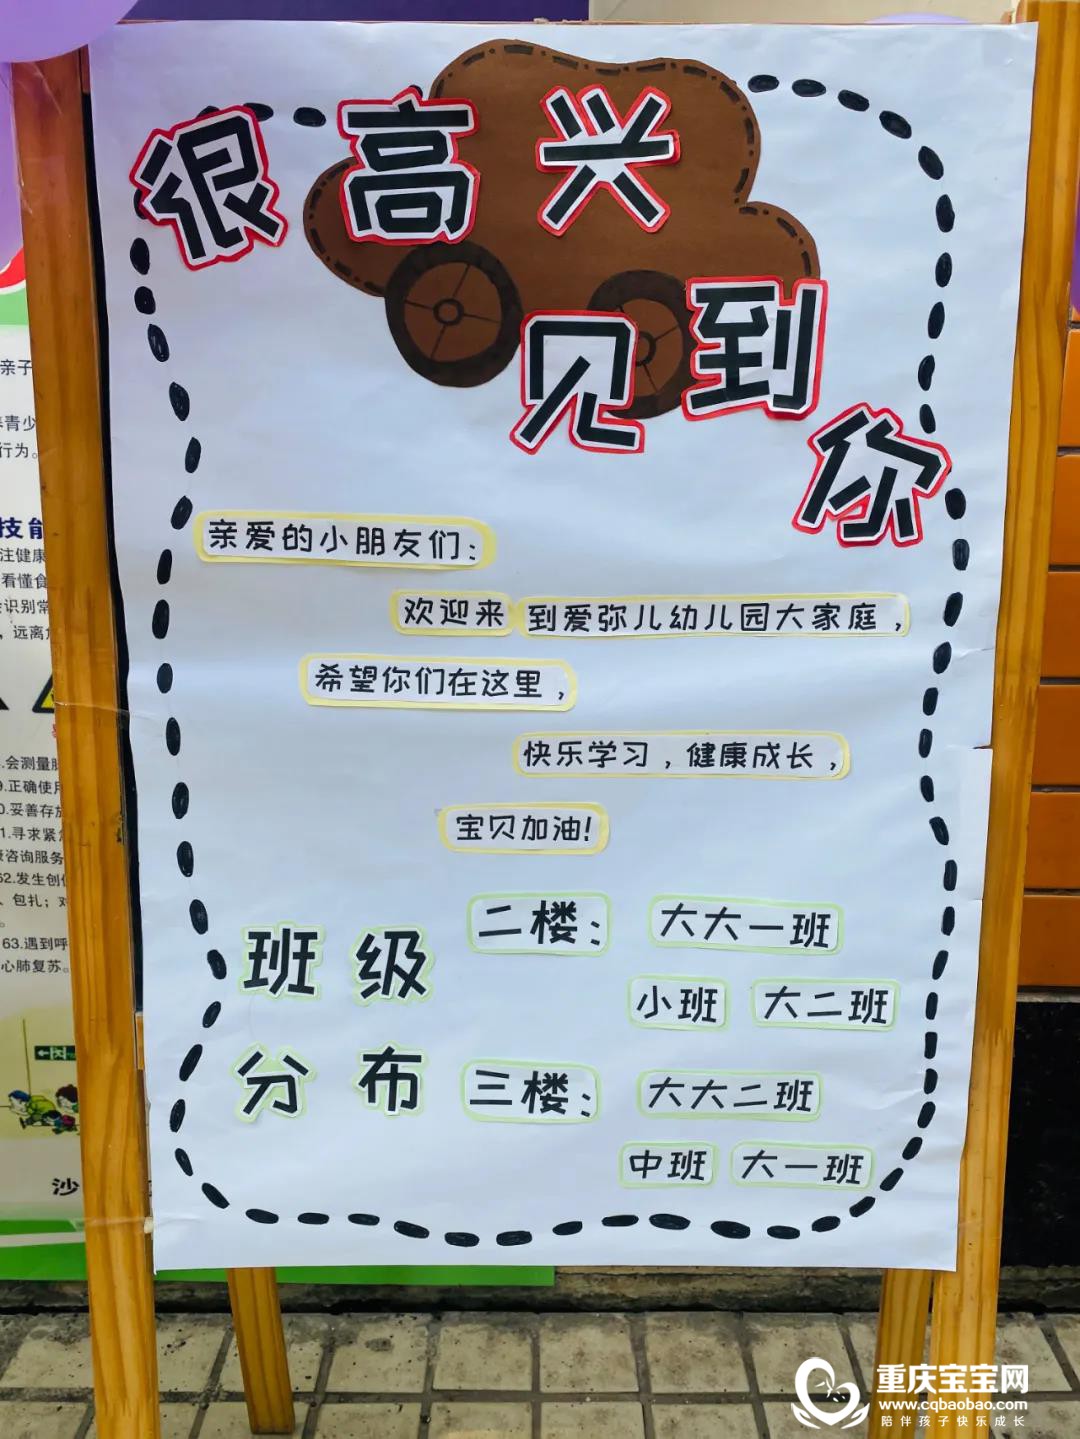 很高兴
见到你
亲爱的小朋友们：
欢迎来到爱弥儿幼儿园大家庭，
希望你们在这里，
快乐学习，健康成长，
宝贝加油！
班级
分布
二楼：大大一班
小班 大二班
三楼：大大二班
中班 大一班
亲子
青少
行为。
技能
注健康
看懂食
识别常
，远离
.会测量
.正确使用
.妥善存放
1.寻求紧
咨询服务
62.发生创
、包扎；
63.遇到呼
心肺复苏。
沙
重庆宝宝网
www.cqbaobao.com
陪伴孩子快乐成长